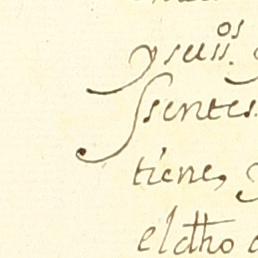 y suii.os
ssentes.
tiene, y
el dtho